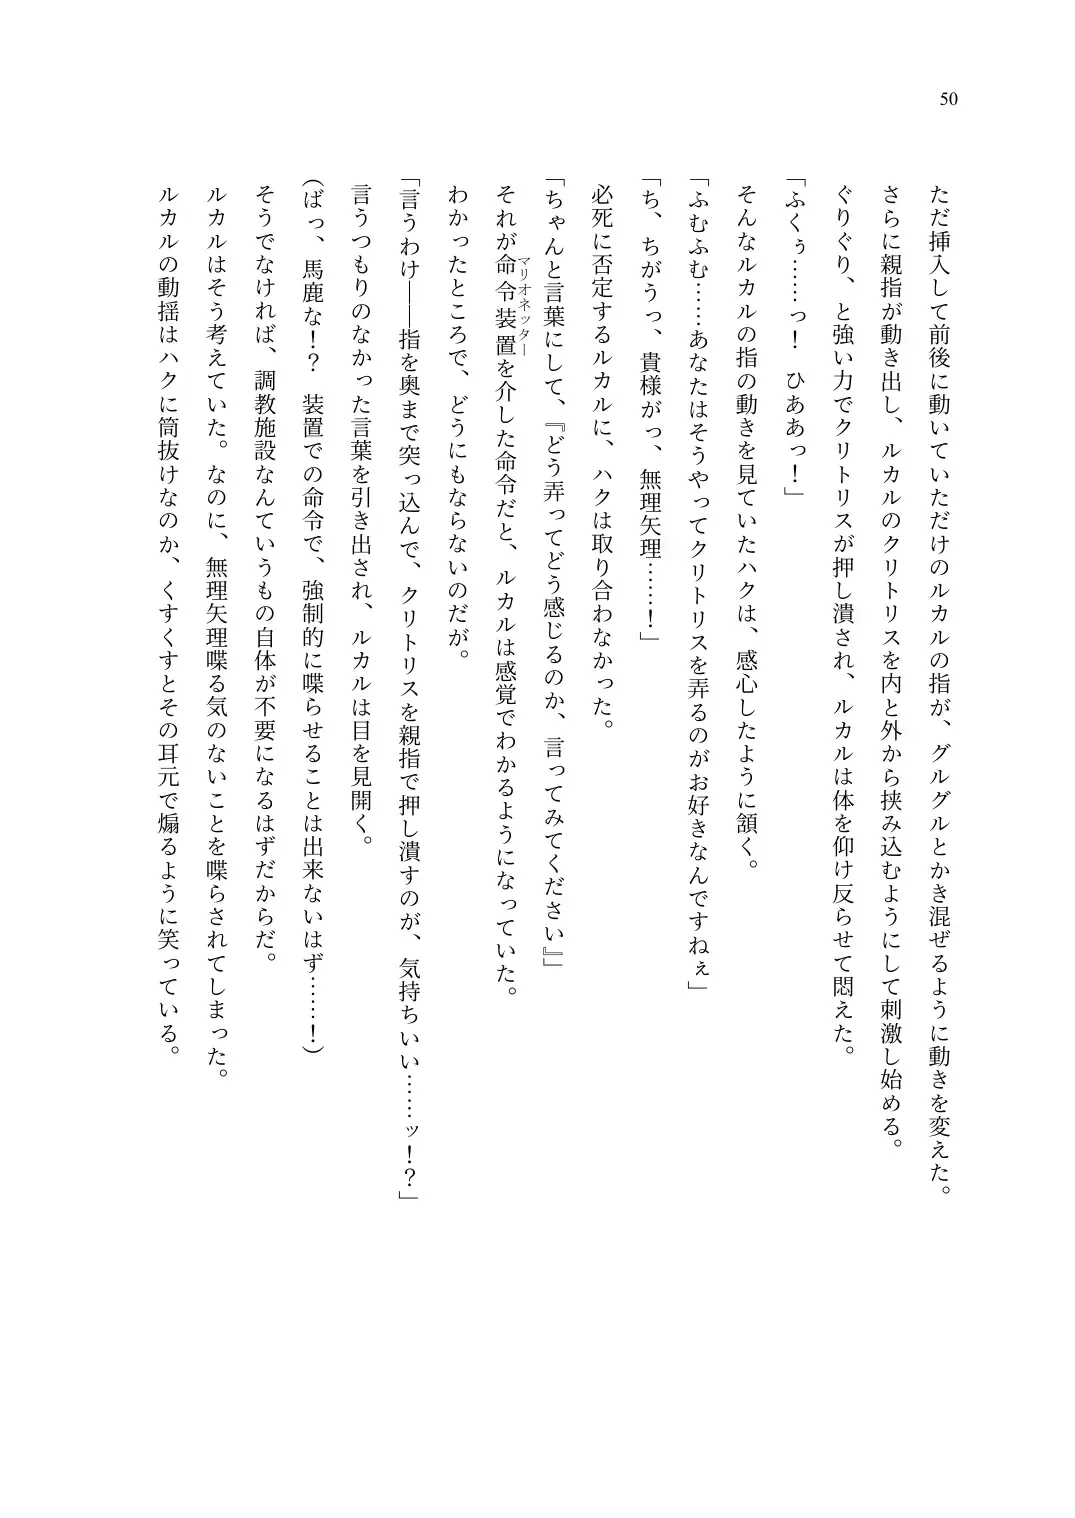 50
ただ挿入して前後に動いていただけのルカルの指が、グルグルとかき混ぜるように動きを変えた。
さらに親指が動き出し、ルカルのクリトリスを内と外から挟み込むようにして刺激し始める。
ぐりぐり、と強い力でクリトリスが押し潰され、ルカルは体を仰け反らせて悶えた。
「ふくぅ……っ！　ひああっ！」
そんなルカルの指の動きを見ていたハクは、感心したように頷く。
「ふむふむ……あなたはそうやってクリトリスを弄るのがお好きなんですねぇ」
「ち、ちがうっ、貴様がっ、無理矢理……！」
必死に否定するルカルに、ハクは取り合わなかった。
「ちゃんと言葉にして、『どう弄ってどう感じるのか、言ってみてください』」
マリオネッター
それが命令装置を介した命令だと、ルカルは感覚でわかるようになっていた。
わかったところで、どうにもならないのだが。
「言うわけ――指を奥まで突っ込んで、クリトリスを親指で押し潰すのが、気持ちいい……ッ！？」
言うつもりのなかった言葉を引き出され、ルカルは目を見開く。
（ばっ、馬鹿な！？　装置での命令で、強制的に喋らせることは出来ないはず……！）
そうでなければ、調教施設なんていうもの自体が不要になるはずだからだ。
ルカルはそう考えていた。なのに、無理矢理喋る気のないことを喋らされてしまった。
ルカルの動揺はハクに筒抜けなのか、くすくすとその耳元で煽るように笑っている。